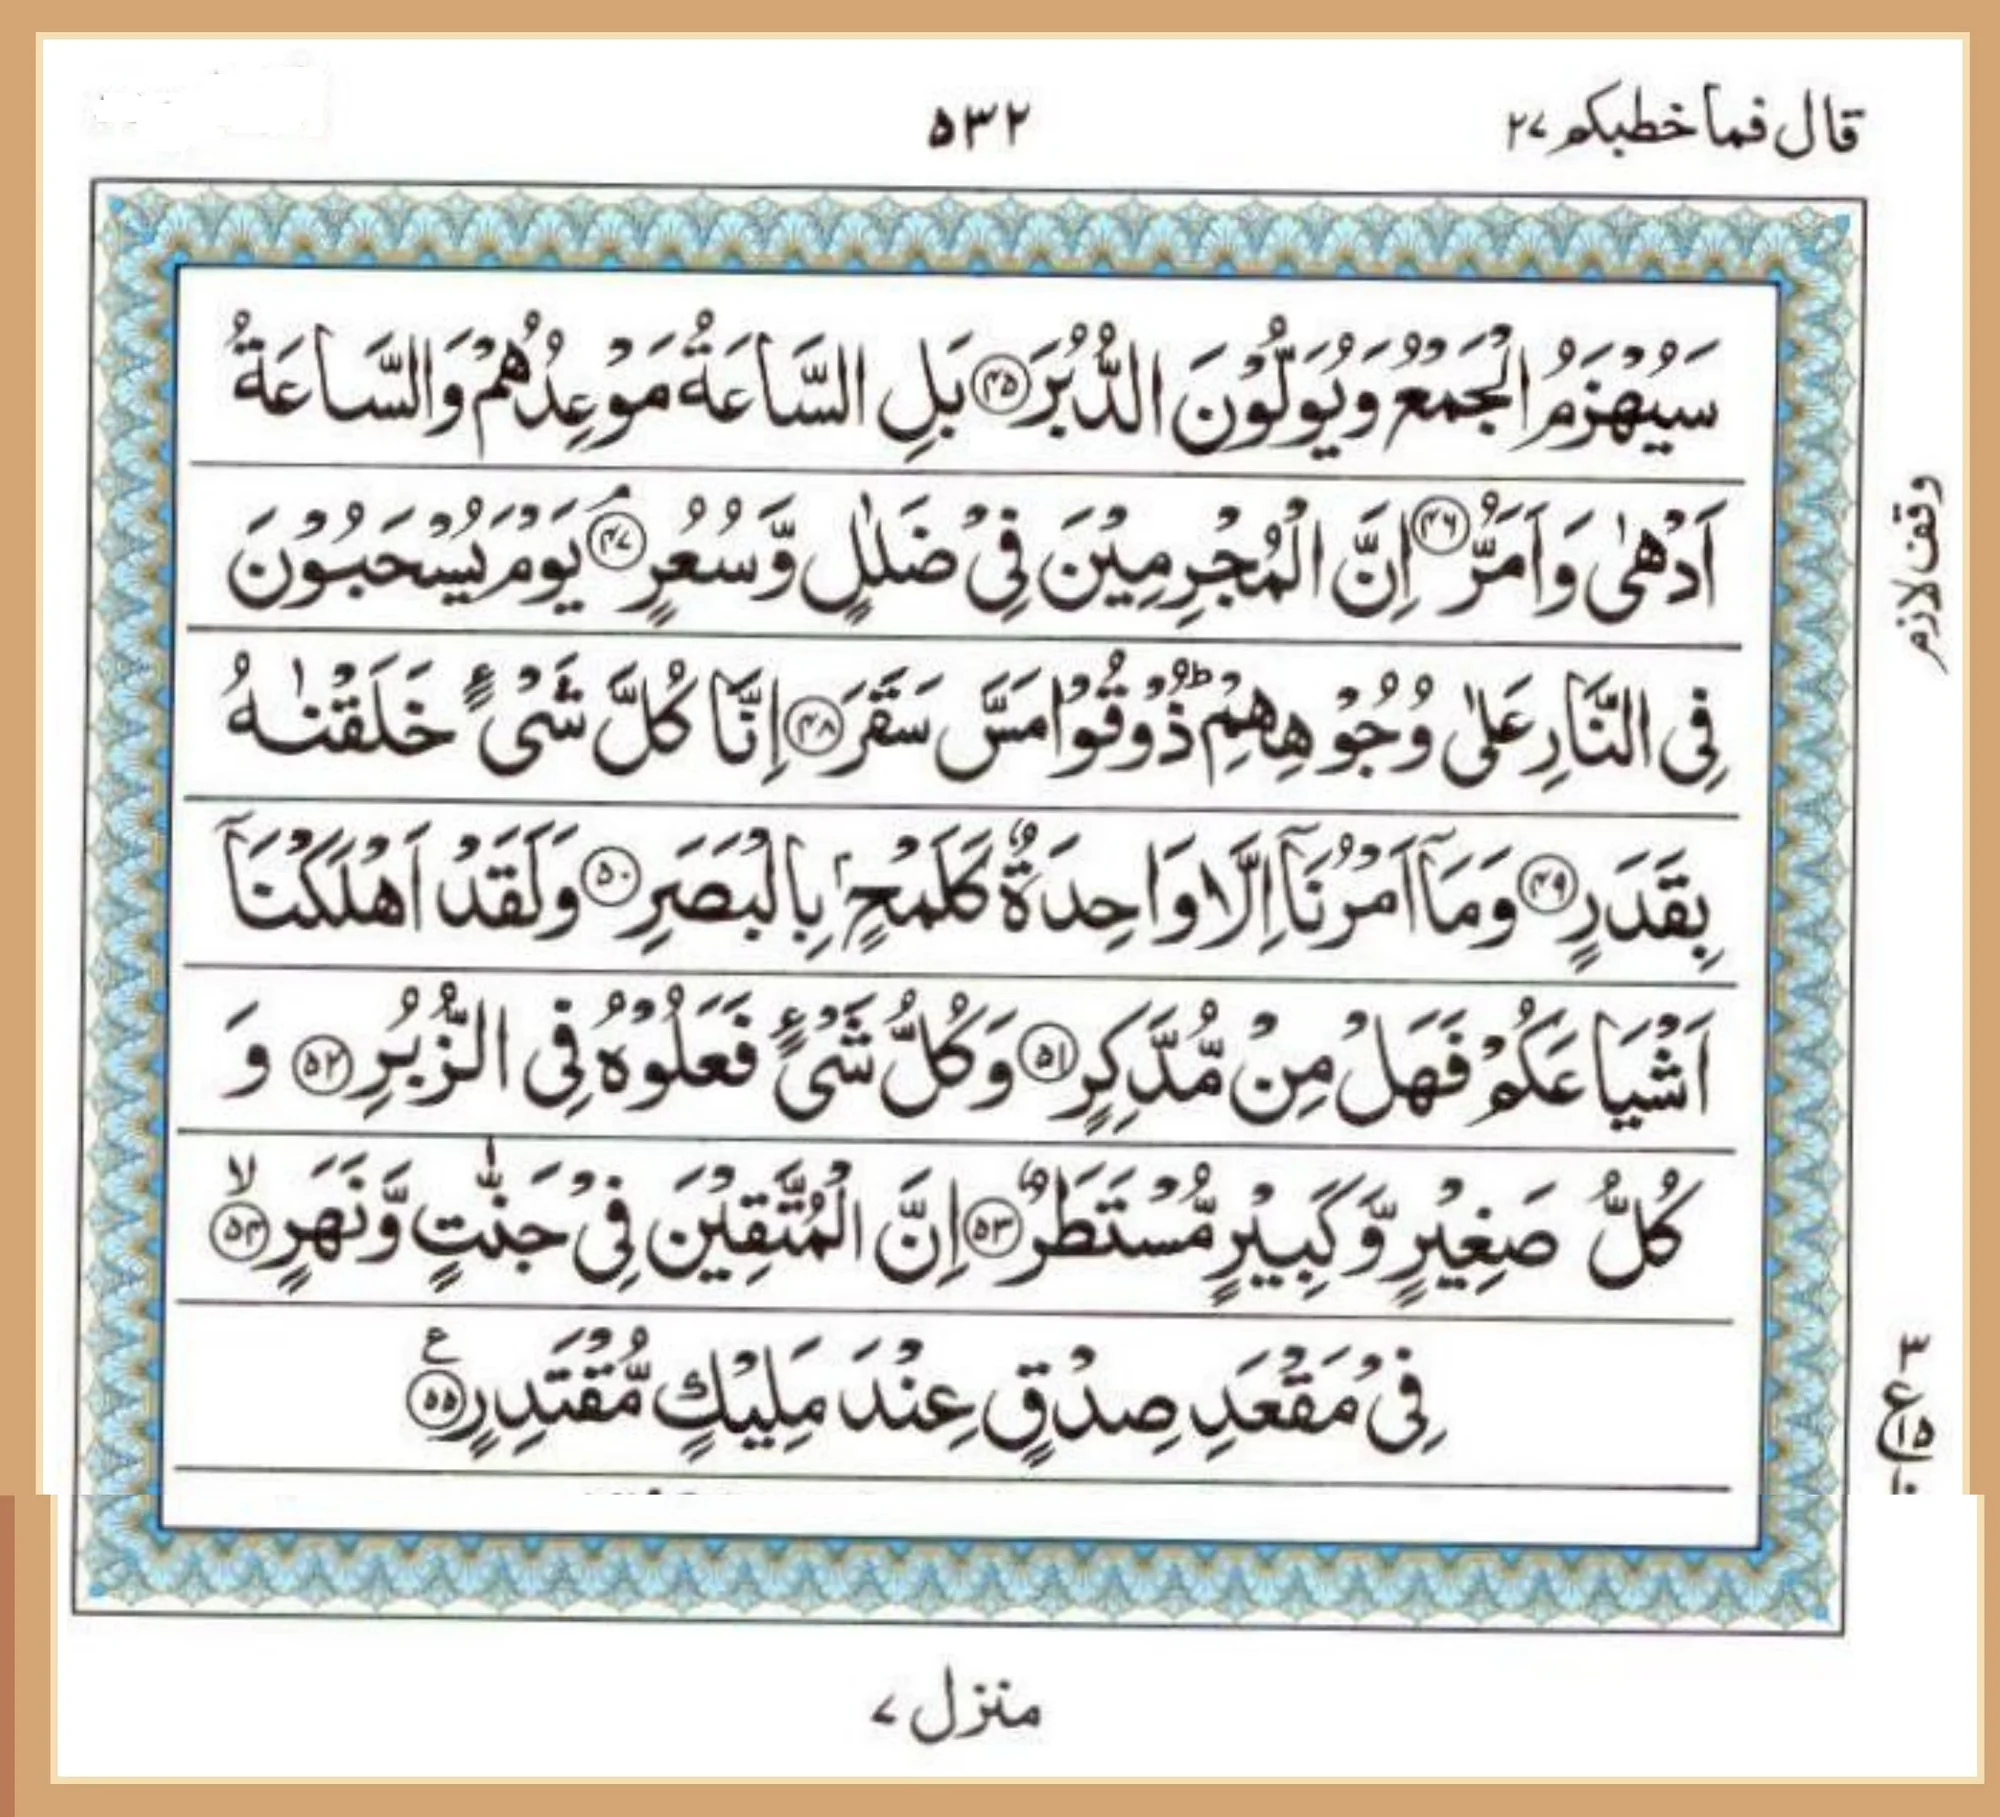 قال فما خطبكم ٢٧
٥٣٢
سَيُهْزَمُ الْجَمْعُ وَيُوَلُّوْنَ الدُّبُرَ ﴿۴۵﴾ بَلِ السَّاعَةُ مَوْعِدُهُمْ وَالسَّاعَةُ
اَدْهٰى وَاَمَرُّ ﴿۴۶﴾ اِنَّ الْمُجْرِمِيْنَ فِيْ ضَلٰلٍ وَّسُعُرٍ ﴿۴۷﴾ۘ يَوْمَ يُسْحَبُوْنَ
وقف لازم
فِى النَّارِ عَلٰى وُجُوْهِهِمْؕ ذُوْقُوْا مَسَّ سَقَرَ ﴿۴۸﴾ اِنَّا كُلَّ شَىْءٍ خَلَقْنٰهُ
بِقَدَرٍ ﴿۴۹﴾ وَمَآ اَمْرُنَآ اِلَّا وَاحِدَةٌ كَلَمْحٍۢ بِالْبَصَرِ ﴿۵۰﴾ وَلَقَدْ اَهْلَكْنَآ
اَشْيَاعَكُمْ فَهَلْ مِنْ مُّدَّكِرٍ ﴿۵۱﴾ وَكُلُّ شَىْءٍ فَعَلُوْهُ فِى الزُّبُرِ ﴿۵۲﴾ وَ
كُلُّ صَغِيْرٍ وَّكَبِيْرٍ مُّسْتَطَرٌ ﴿۵۳﴾ اِنَّ الْمُتَّقِيْنَ فِيْ جَنّٰتٍ وَّنَهَرٍ ﴿۵۴﴾ۙ
فِيْ مَقْعَدِ صِدْقٍ عِنْدَ مَلِيْكٍ مُّقْتَدِرٍ ﴿۵۵﴾ ع
٣
ع ١٥
منزل ٧